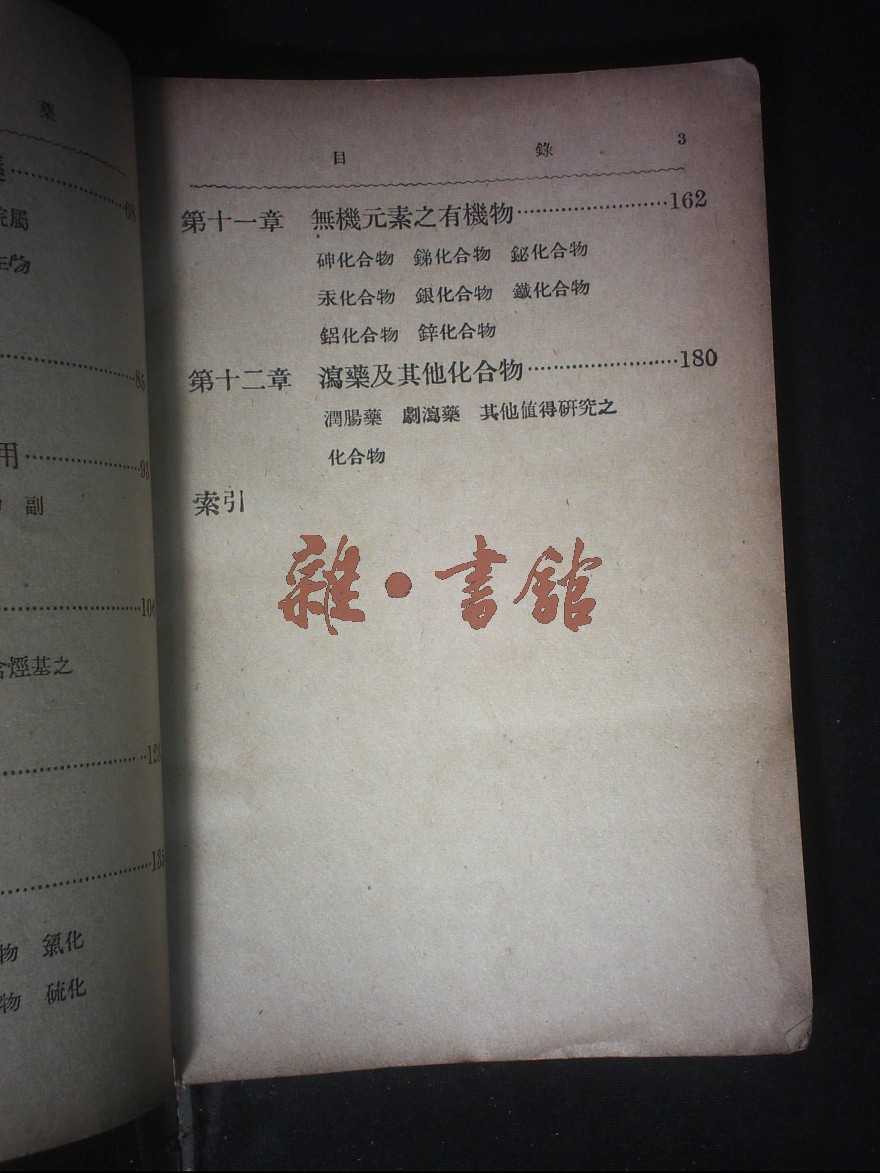 藥
68
85
用 93
副
106
合烴基之
物 氯化
物 硫化
目 錄 3
第十一章 無機元素之有機物 162
砷化合物 銻化合物 鉍化合物
汞化合物 銀化合物 鐵化合物
鋁化合物 鋅化合物
第十二章 瀉藥及其他化合物 180
潤腸藥 劇瀉藥 其他值得研究之
化合物
索引
雜·書館